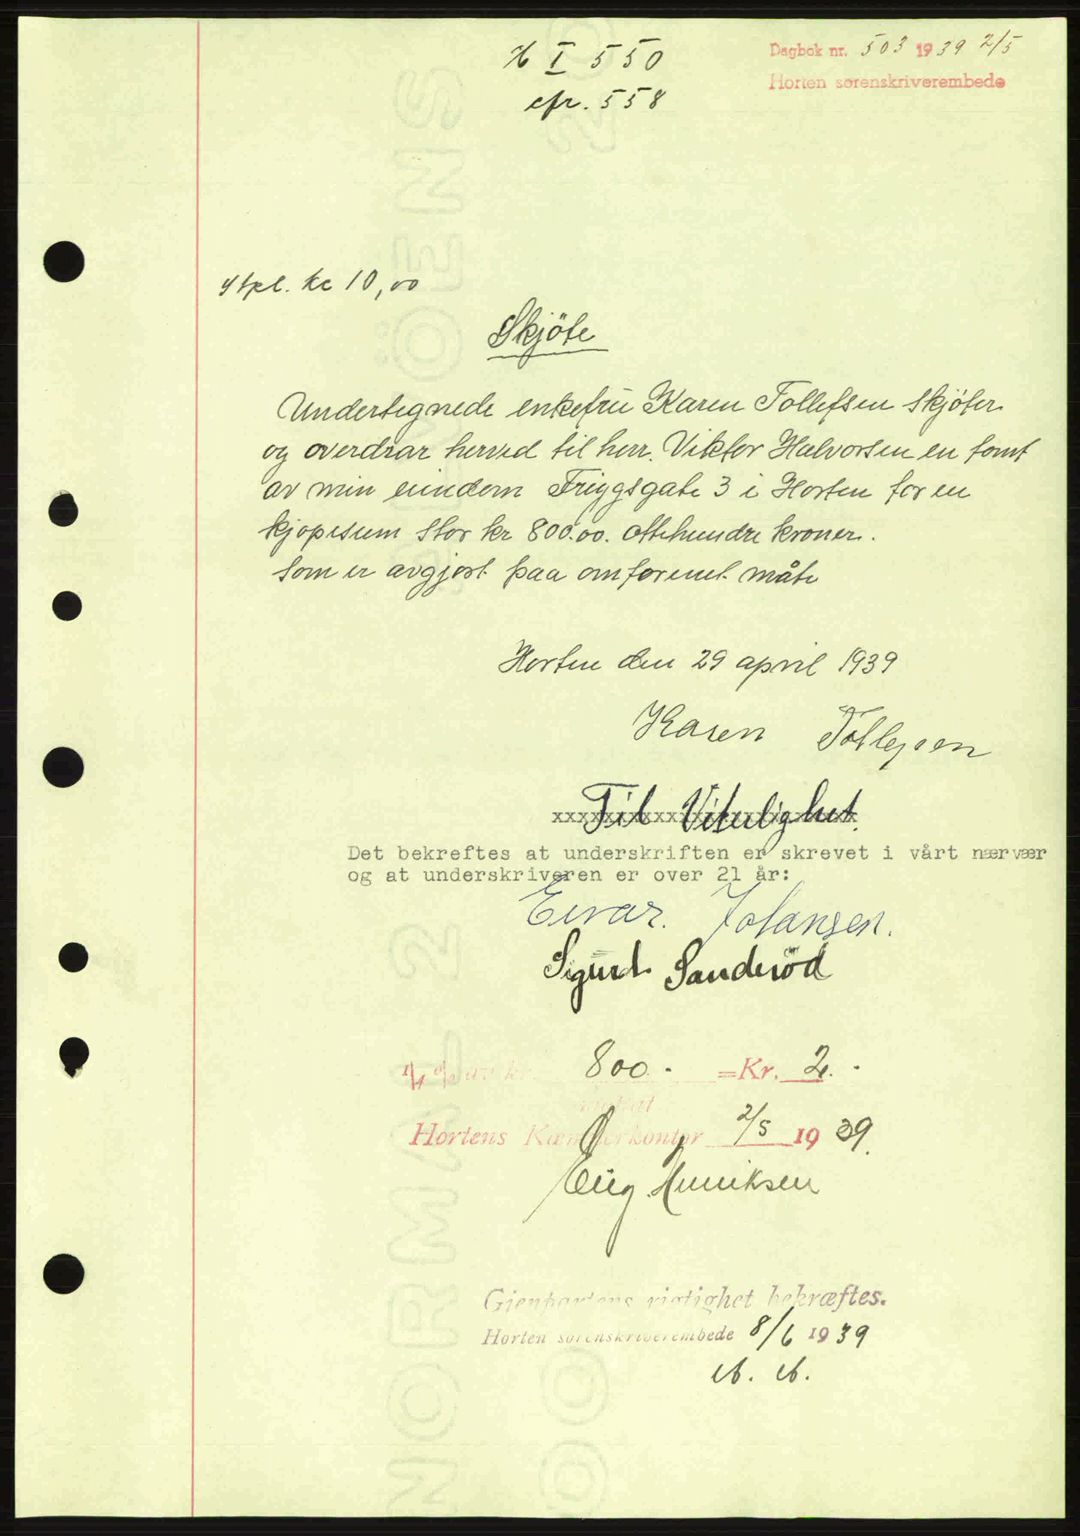 Dagbok nr. 503 1939 2/5
Horten sorenskriverembede
H I 550
cfr. 558
Stpl. kr 10,00
Skjöte
Undertegnede enkefru Karen Tollefsen skjöter
og overdrar herved til herr. Viktor Halvorsen en tomt
av min eiendom Friggsgate 3 i Horten for en
kjøpesum stor kr 800.00. ottehundre kroner.
som er avgjort paa omforenet måte
Horten den 29 april 1939
Karen Tollefsen
Til Vitterlighet.
Det bekreftes at underskriften er skrevet i vårt nærvær
og at underskriveren er over 21 år:
Eivar. Johansen.
Sigurd Sanderöd
1/4 % av kr. 800.- =Kr. 2.-
Hortens Kæmnerkontor 2/5 1939.
Henriksen
Gjenpartens rigtighet bekræftes.
Horten sorenskriverembede 8/6 1939
NORMAL 2